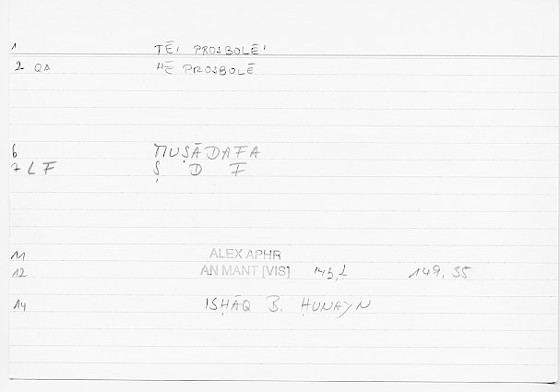 1 TĒI PROSBOLĒI
2 QA HĒ PROSBOLĒ
6 MUṢĀDAFA
7 LF Ṣ D F
11 ALEX APHR
12 AN MANT [VIS] 149, 35
14 ISḤĀQ B. ḤUNAYN